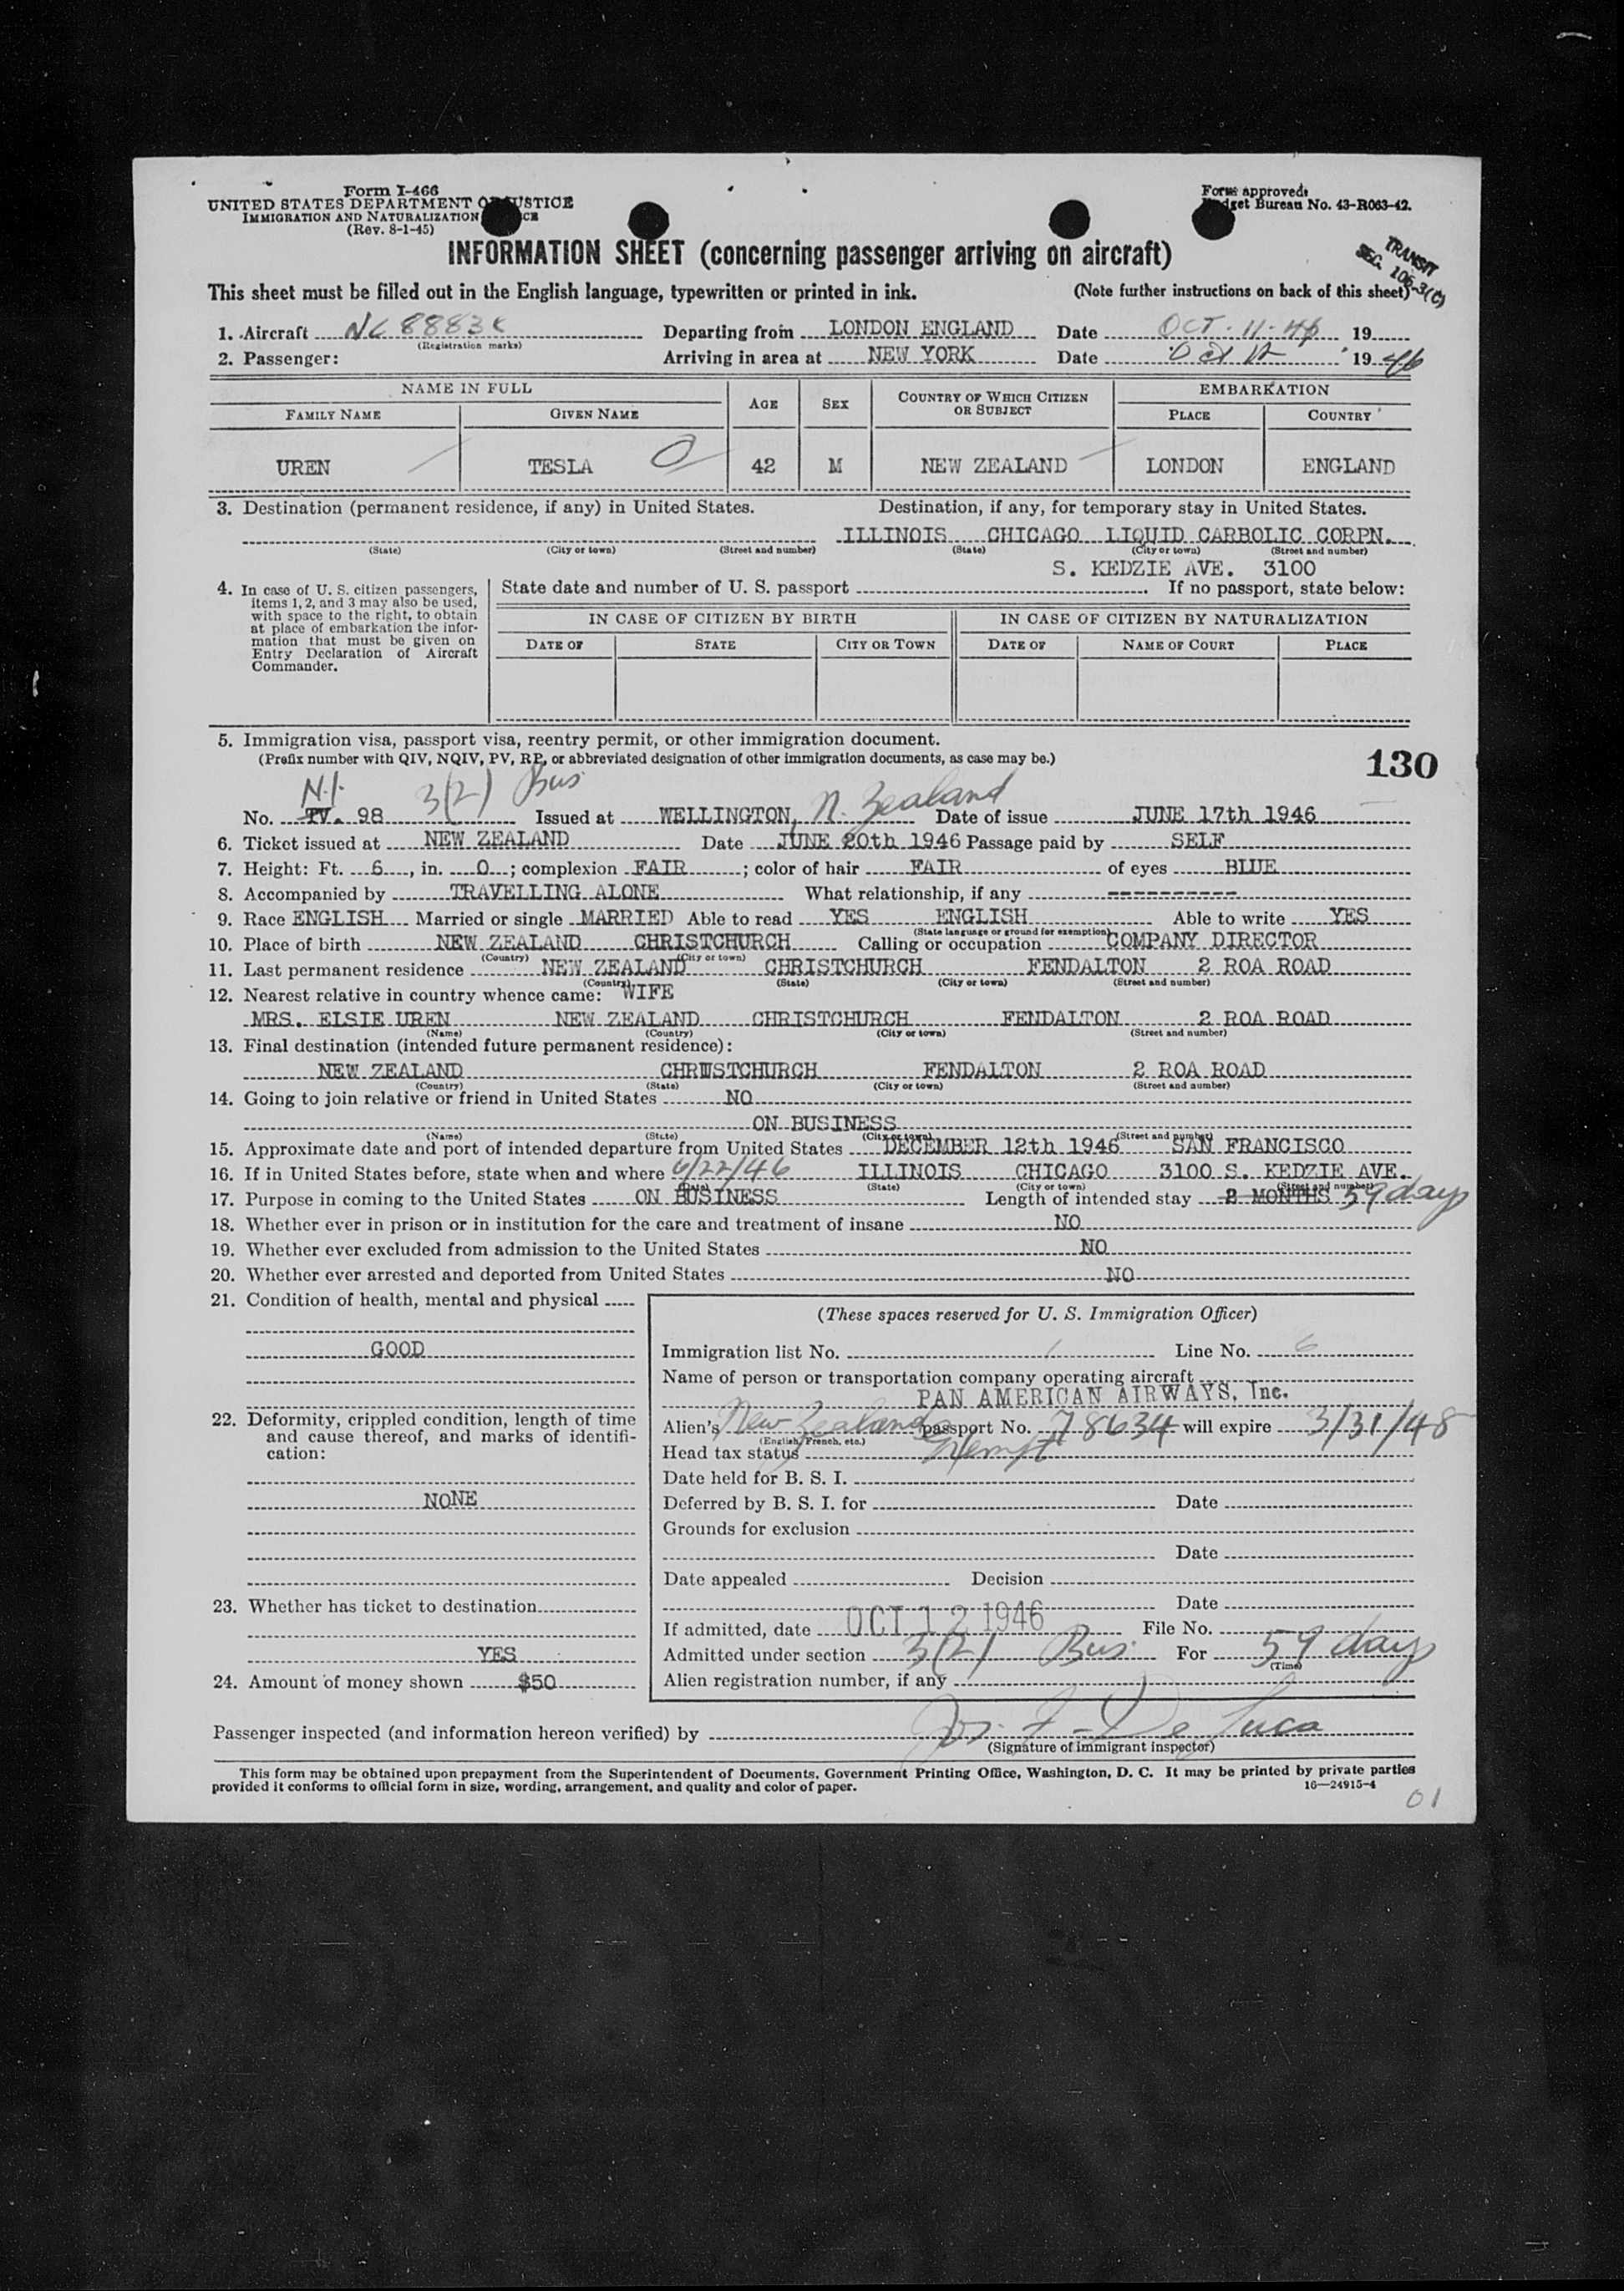 Form I-466
UNITED STATES DEPARTMENT OF JUSTICE
IMMIGRATION AND NATURALIZATION
(Rev. 8-1-45)
Form approved:
Budget Bureau No. 43-R063-42.
INFORMATION SHEET (concerning passenger arriving on aircraft)
TRANSIT
SEC. 106-3(C)
This sheet must be filled out in the English language, typewritten or printed in ink. (Note further instructions on back of this sheet)
1. Aircraft Departing from LONDON ENGLAND Date OCT. 11-46 19
(Registration marks)
2. Passenger: Arriving in area at NEW YORK Date Oct 12 1946
NAME IN FULL AGE SEX COUNTRY OF WHICH CITIZEN OR SUBJECT EMBARKATION
FAMILY NAME GIVEN NAME PLACE COUNTRY
UREN TESLA O 42 M NEW ZEALAND LONDON ENGLAND
3. Destination (permanent residence, if any) in United States. Destination, if any, for temporary stay in United States.
ILLINOIS CHICAGO LIQUID CARBOLIC CORPN.
(State) (City or town) (Street and number) (State) (City or town) (Street and number)
S. KEDZIE AVE. 3100
4. In case of U. S. citizen passengers, items 1, 2, and 3 may also be used, with space to the right, to obtain at place of embarkation the information that must be given on Entry Declaration of Aircraft Commander.
State date and number of U. S. passport If no passport, state below:
IN CASE OF CITIZEN BY BIRTH IN CASE OF CITIZEN BY NATURALIZATION
DATE OF STATE CITY OR TOWN DATE OF NAME OF COURT PLACE
5. Immigration visa, passport visa, reentry permit, or other immigration document.
(Prefix number with QIV, NQIV, PV, RP, or abbreviated designation of other immigration documents, as case may be.)
130
N.I. 3(2) Bus
No. PV. 98 Issued at WELLINGTON, N. Zealand Date of issue JUNE 17th 1946
6. Ticket issued at NEW ZEALAND Date JUNE 20th 1946 Passage paid by SELF
7. Height: Ft. 6, in. 0; complexion FAIR; color of hair FAIR of eyes BLUE
8. Accompanied by TRAVELLING ALONE What relationship, if any ----------
9. Race ENGLISH Married or single MARRIED Able to read YES ENGLISH Able to write YES
(State language or ground for exemption)
10. Place of birth NEW ZEALAND CHRISTCHURCH Calling or occupation COMPANY DIRECTOR
(Country) (City or town)
11. Last permanent residence NEW ZEALAND CHRISTCHURCH FENDALTON 2 ROA ROAD
(Country) (State) (City or town) (Street and number)
12. Nearest relative in country whence came: WIFE
MRS. ELSIE UREN NEW ZEALAND CHRISTCHURCH FENDALTON 2 ROA ROAD
(Name) (Country) (City or town) (Street and number)
13. Final destination (intended future permanent residence):
NEW ZEALAND CHRISTCHURCH FENDALTON 2 ROA ROAD
(Country) (State) (City or town) (Street and number)
14. Going to join relative or friend in United States NO
ON BUSINESS
(Name) (State) (City or town) (Street and number)
15. Approximate date and port of intended departure from United States DECEMBER 12th 1946 SAN FRANCISCO
16. If in United States before, state when and where 6/22/46 ILLINOIS CHICAGO 3100 S. KEDZIE AVE.
(Date) (State) (City or town) (Street and number)
17. Purpose in coming to the United States ON BUSINESS Length of intended stay 2 MONTHS 59 days
18. Whether ever in prison or in institution for the care and treatment of insane NO
19. Whether ever excluded from admission to the United States NO
20. Whether ever arrested and deported from United States NO
21. Condition of health, mental and physical
GOOD
22. Deformity, crippled condition, length of time and cause thereof, and marks of identification:
NONE
23. Whether has ticket to destination
YES
24. Amount of money shown $50
(These spaces reserved for U. S. Immigration Officer)
Immigration list No. 1 Line No. 6
Name of person or transportation company operating aircraft
PAN AMERICAN AIRWAYS, Inc.
Alien's New Zealand passport No. 78634 will expire 3/31/48
(English, French, etc.)
Head tax status Exempt
Date held for B. S. I.
Deferred by B. S. I. for Date
Grounds for exclusion
Date
Date appealed Decision
Date
If admitted, date OCT 12 1946 File No.
Admitted under section 3(2) Bus. For 59 days
(Time)
Alien registration number, if any
Passenger inspected (and information hereon verified) by De Luca
(Signature of Immigrant inspector)
This form may be obtained upon prepayment from the Superintendent of Documents, Government Printing Office, Washington, D. C. It may be printed by private parties
provided it conforms to official form in size, wording, arrangement, and quality and color of paper. 16—24915-4
01